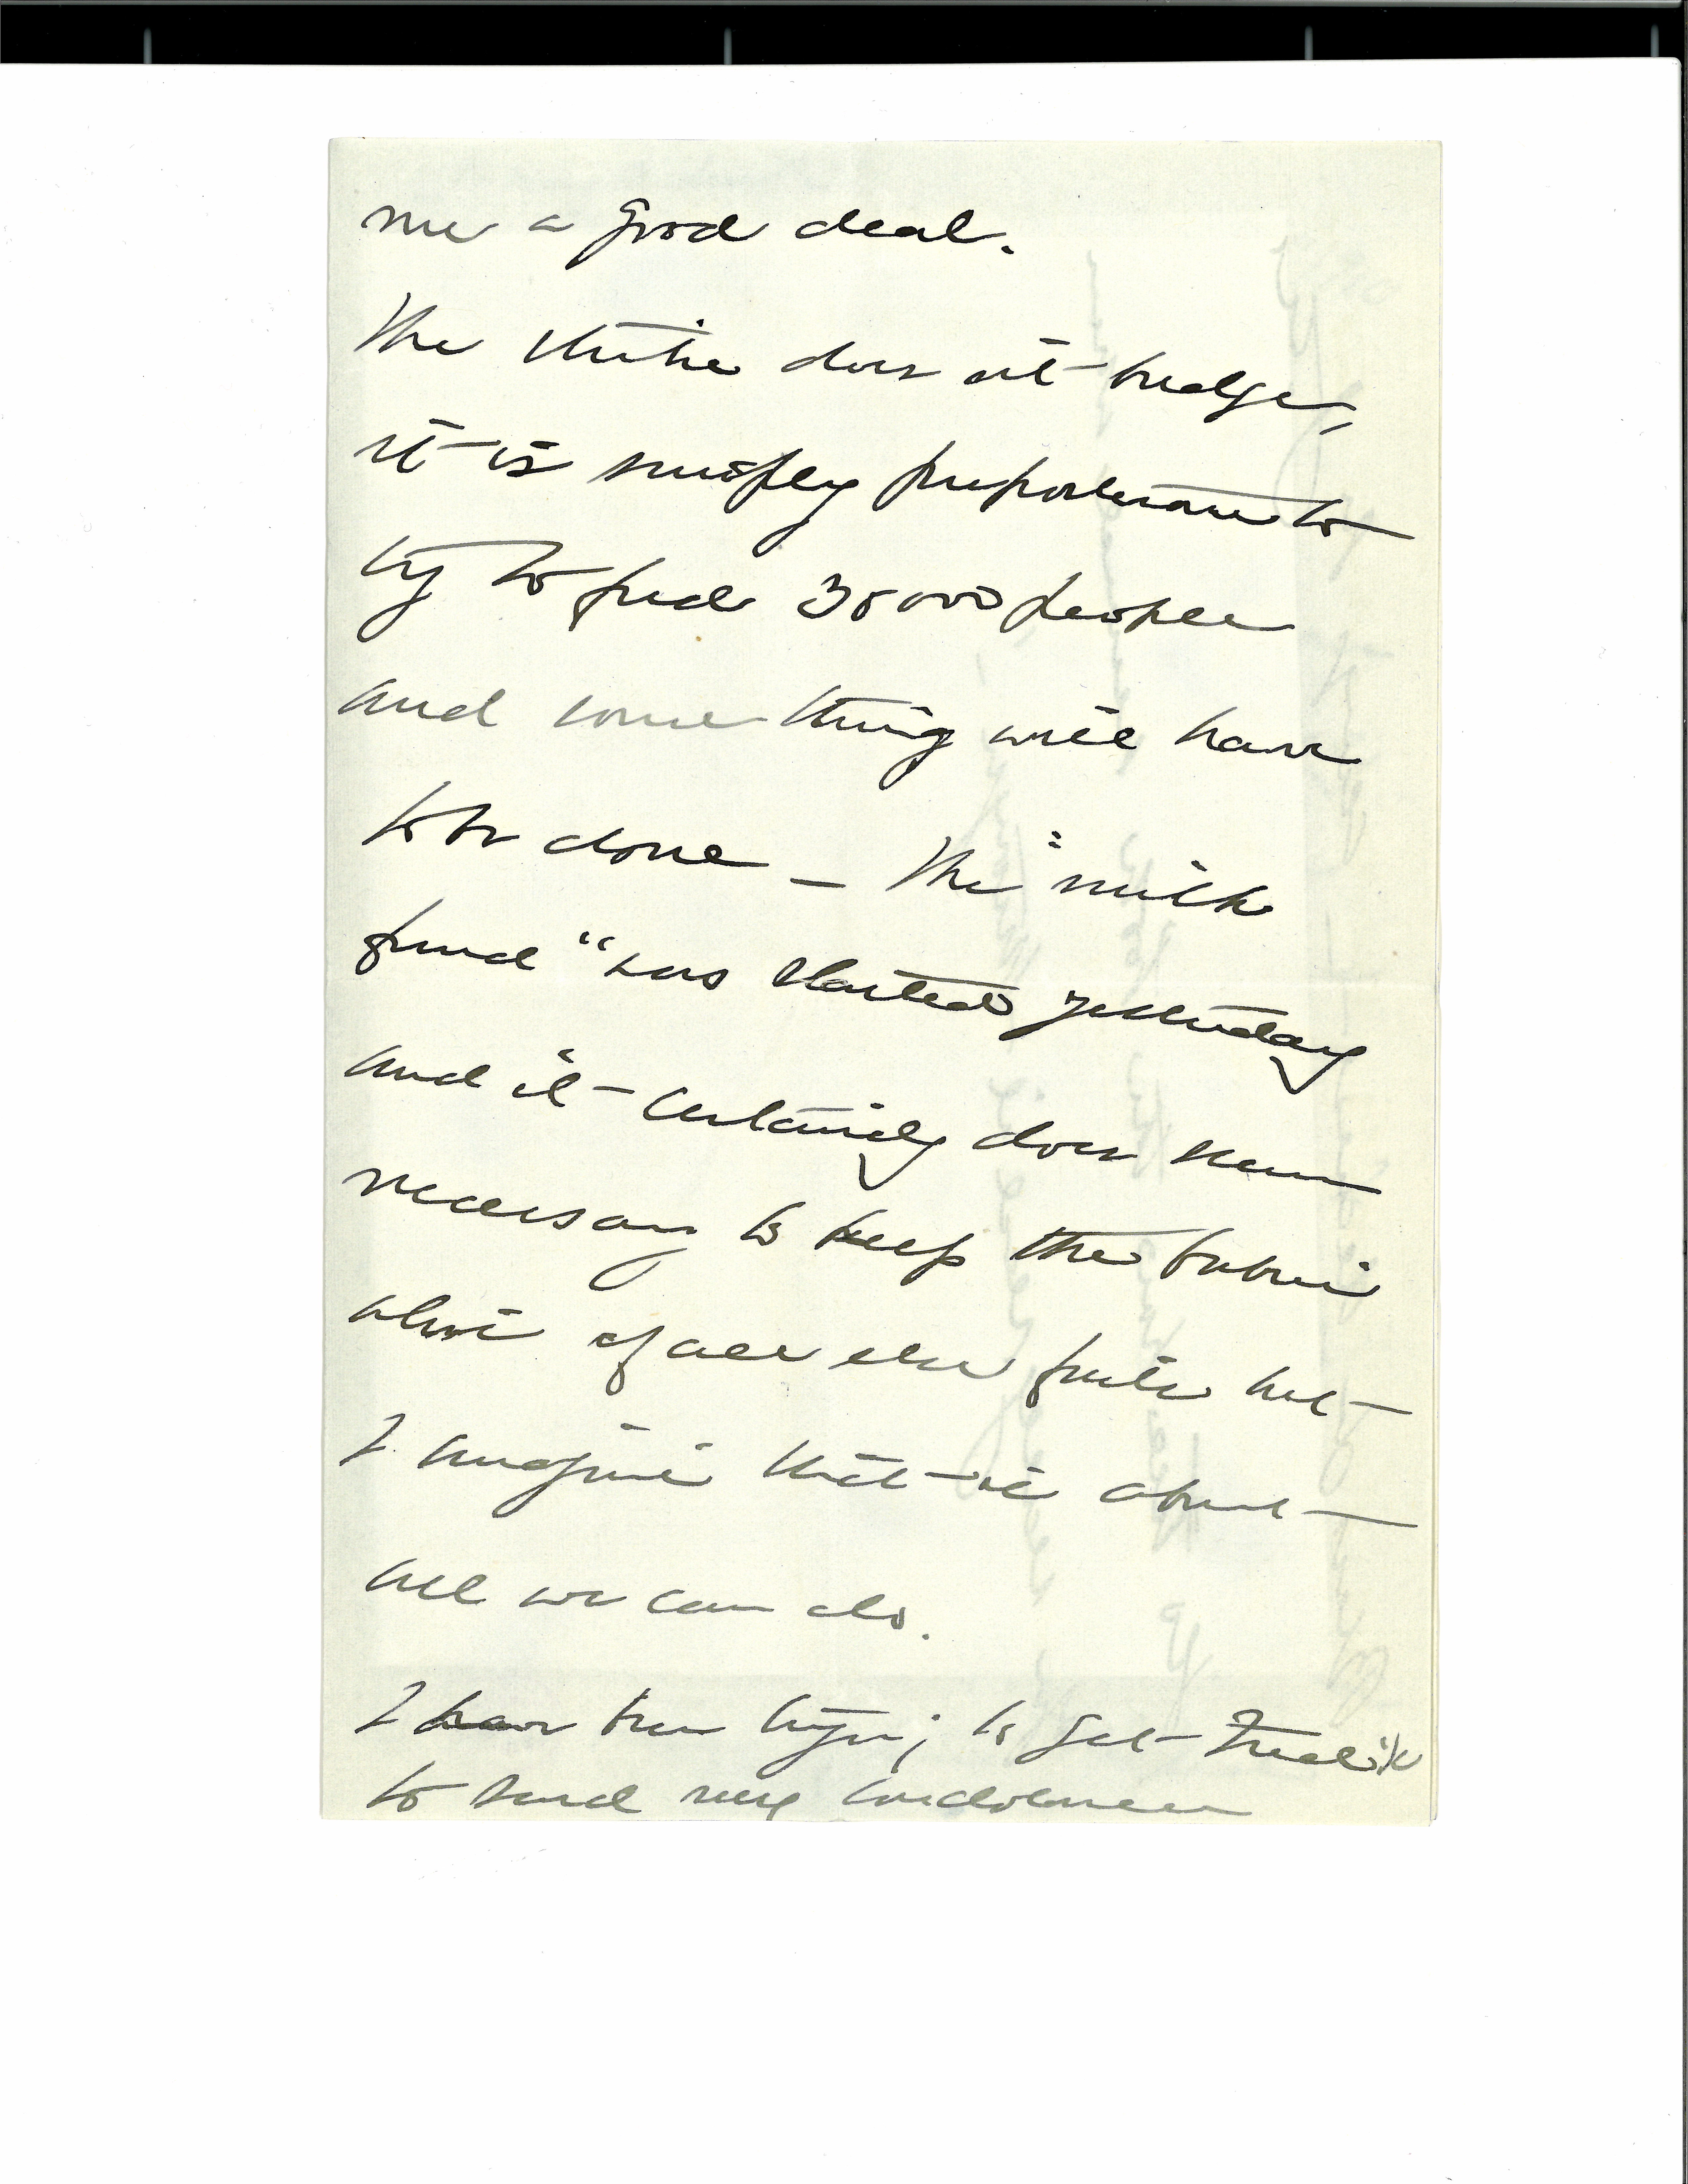 me a good deal.
The strike does not budge,
it is simply preposterous to
try to feed 30 000 people
and some thing will have
to be done – The "milk
fund" was started yesterday
and it certainly does seem
necessary to keep the babies
alive if all else fails but
I imagine that is about
all we can do.
I have been trying to get
to send my condolences